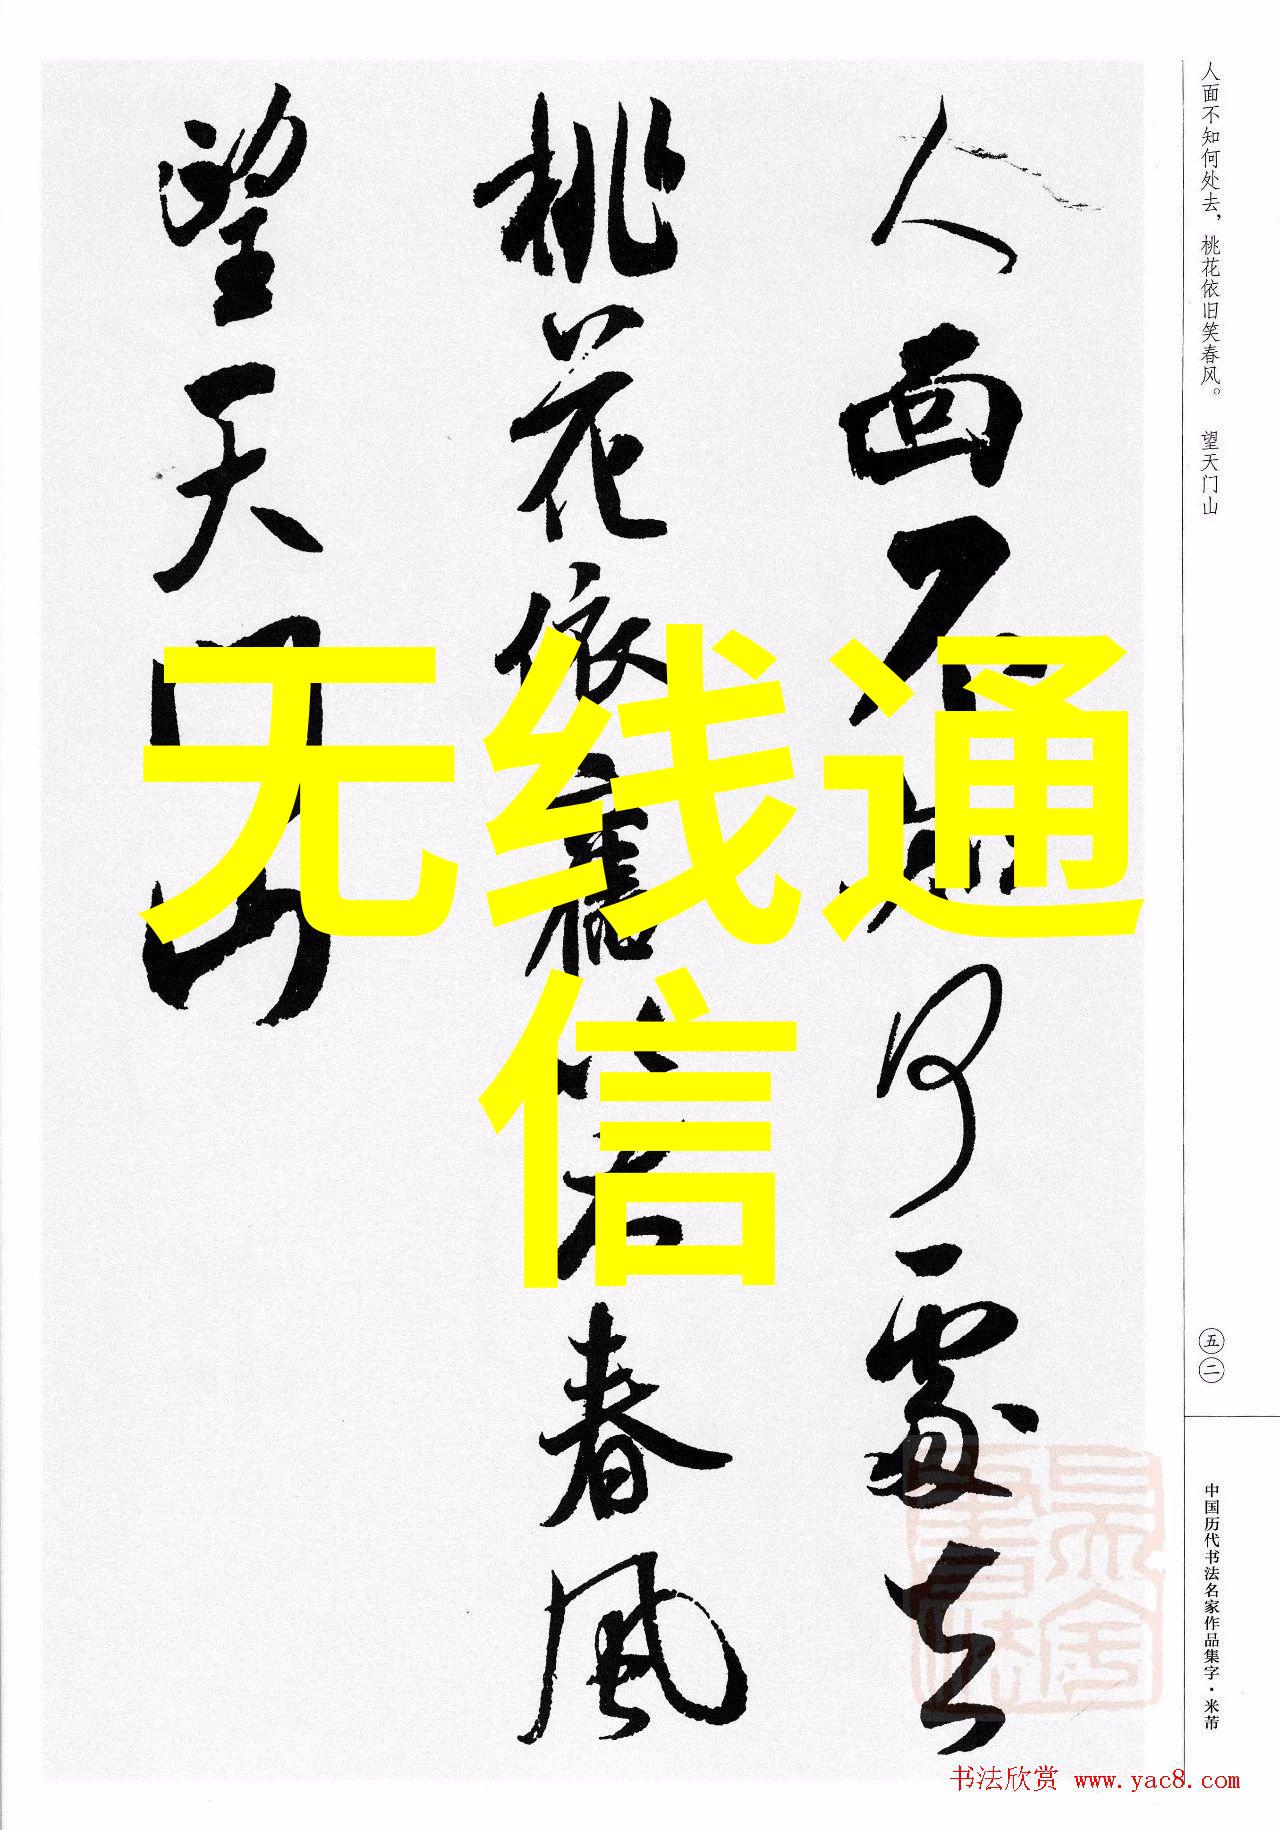 人面不知何處去
桃花依舊笑春風
望天門山
无线通
信
人面不知何处去，桃花依旧笑春风。 望天门山
五二
中国历代书法名家作品集字·米芾
书法欣赏 www.yac8.com